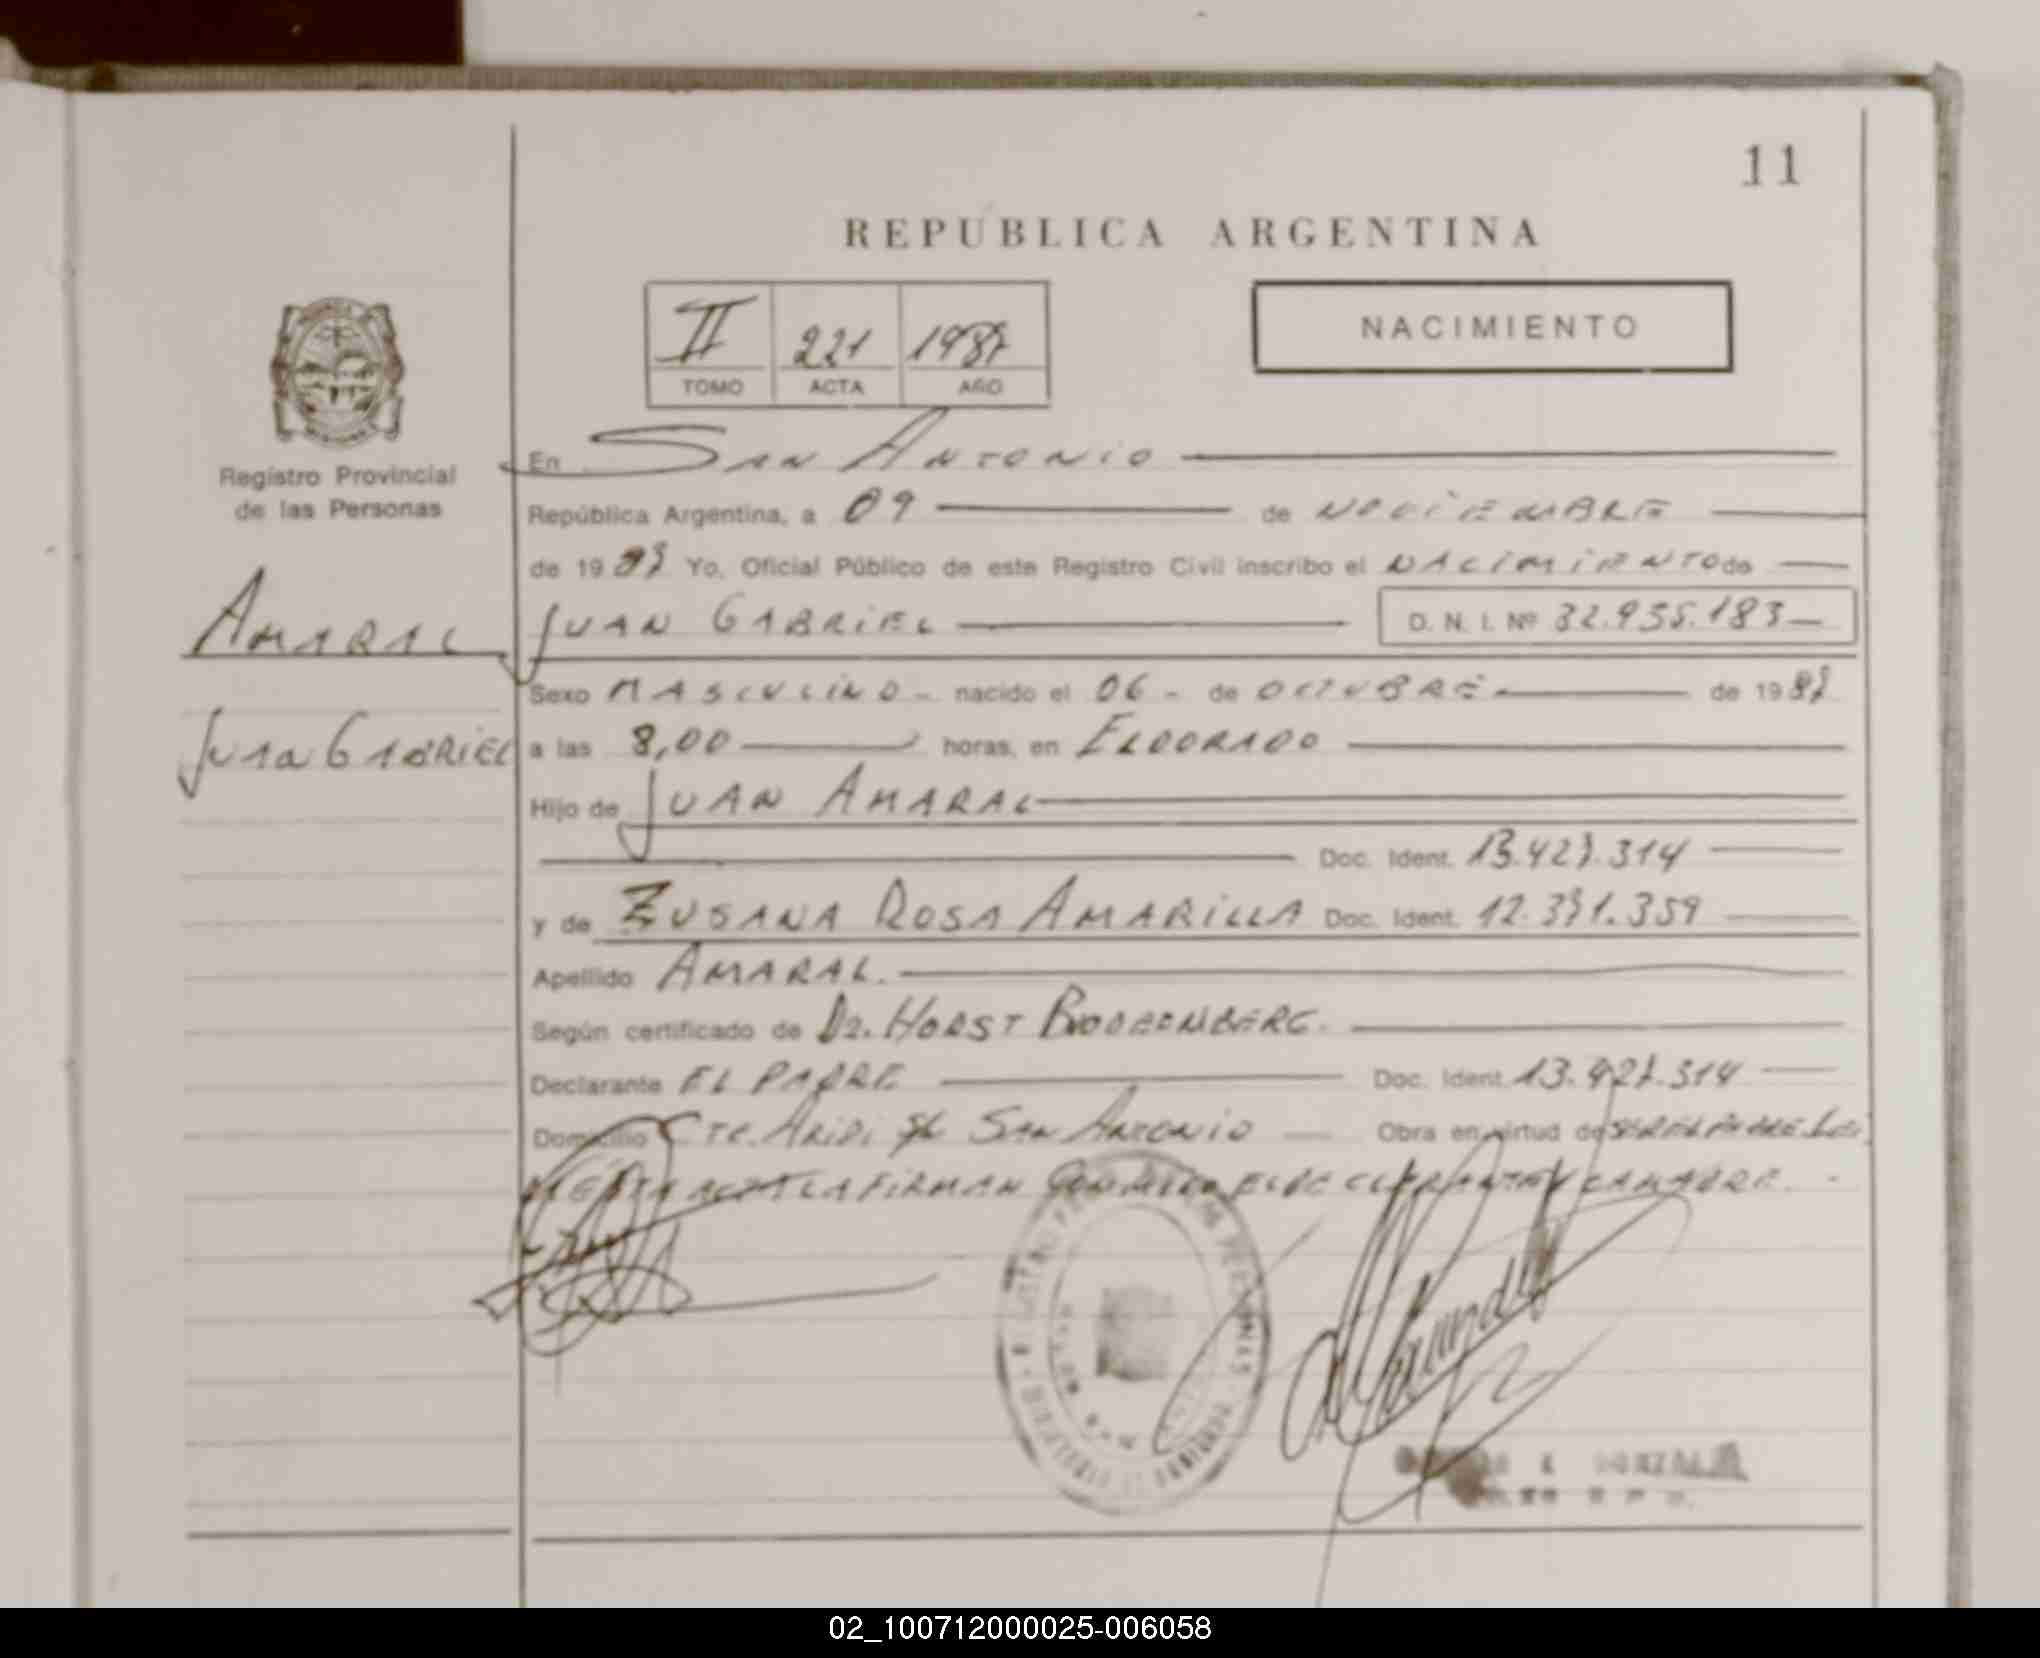 11
REPUBLICA ARGENTINA
II 221 1987
TOMO ACTA AÑO
NACIMIENTO
Registro Provincial
de las Personas
AMARAL
JUAN GABRIEL
En SAN ANTONIO
República Argentina, a 09 de NOVIEMBRE
de 1987 Yo, Oficial Público de este Registro Civil inscribo el NACIMIENTO de
JUAN GABRIEL D. N. I. Nº 32.935.183
Sexo MASCULINO - nacido el 06 - de OCTUBRE de 1987
a las 8,00 horas, en ELDORADO
Hijo de JUAN AMARAL
Doc. Ident. 13.427.314
y de ZUSANA ROSA AMARILLA Doc. Ident. 12.371.359
Apellido AMARAL.
Según certificado de DR. HORST
Declarante EL PADRE Doc. Ident. 13.427.314
Domicilio CTE. ARIDI SAN ANTONIO Obra en virtud de SER EL PADRE.
ACTA LA FIRMAN CONMIGO EL DECLARANTE Y LA MADRE. -
02_100712000025-006058